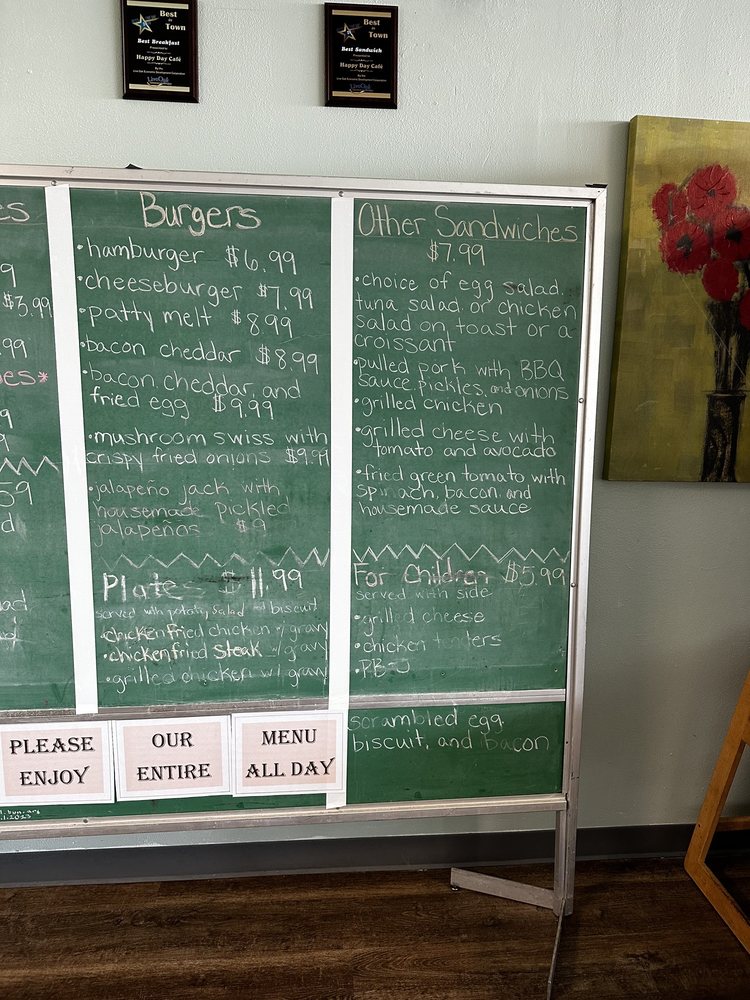 Best
in
Town
Best Breakfast
Presented to
Happy Day Café
Best
in
Town
Best Sandwich
Presented to
Happy Day Café
es
9
$3.99
.99
es*
9
9
59
d
ad
Burgers
•hamburger $6.99
•cheeseburger $7.99
•patty melt $8.99
•bacon cheddar $8.99
•bacon, cheddar, and
fried egg $9.99
•mushroom swiss with
crispy fried onions $9.99
•jalapeño jack with
housemade pickled
jalapeños $9
Plate $11.99
served with potato, salad biscuit
•chicken fried chicken w/ gravy
•chicken fried steak w/ gravy
•grilled chicken w/ gravy
Other Sandwiches
$7.99
•choice of egg salad,
tuna salad or chicken
salad on toast or a
croissant
•pulled pork with BBQ
sauce, pickles, and onions
•grilled chicken
•grilled cheese with
tomato and avocado
•fried green tomato with
spinach, bacon, and
housemade sauce
For Children $5.99
served with side
•grilled cheese
•chicken tenders
•PB-J
scrambled egg
biscuit, and bacon
PLEASE
ENJOY
OUR
ENTIRE
MENU
ALL DAY